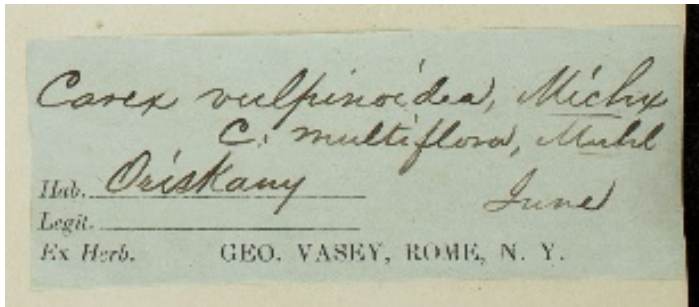 Carex vulpinoidea, Michx
C. multiflora, Muhl
Hab. Oriskany
June
Legit.
Ex Herb. GEO. VASEY, ROME, N. Y.